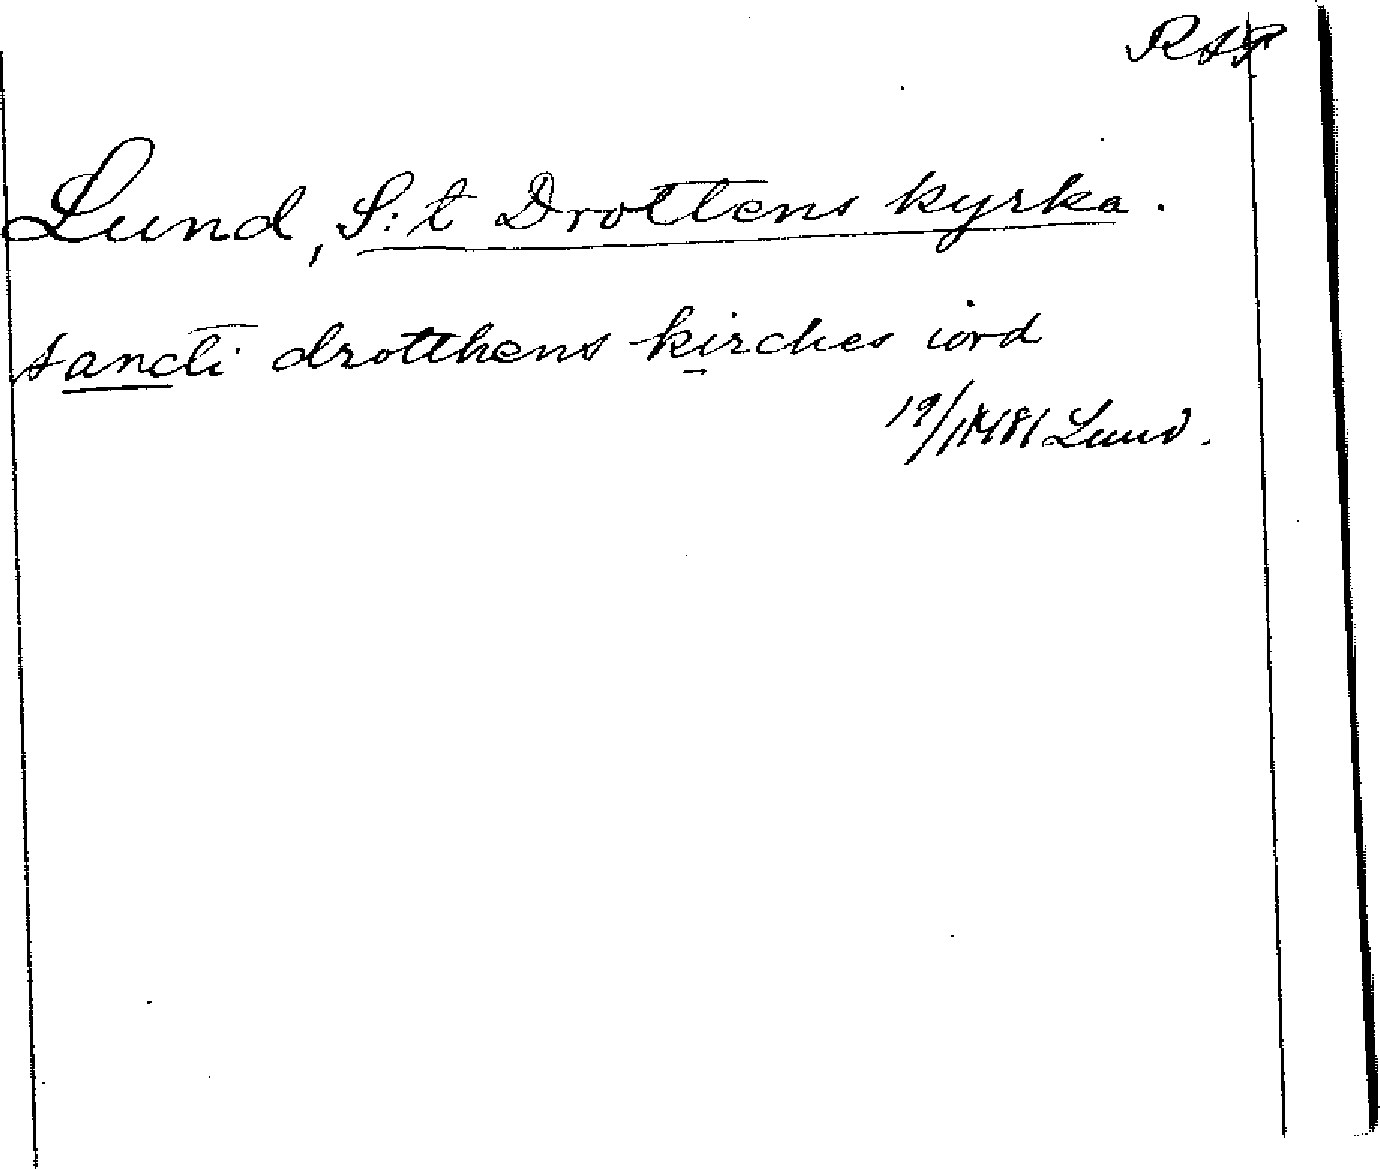 RAP
Lund, S:t Drottens kyrka.
sancti drotthens kirches iord
19/1 1481 Lund.